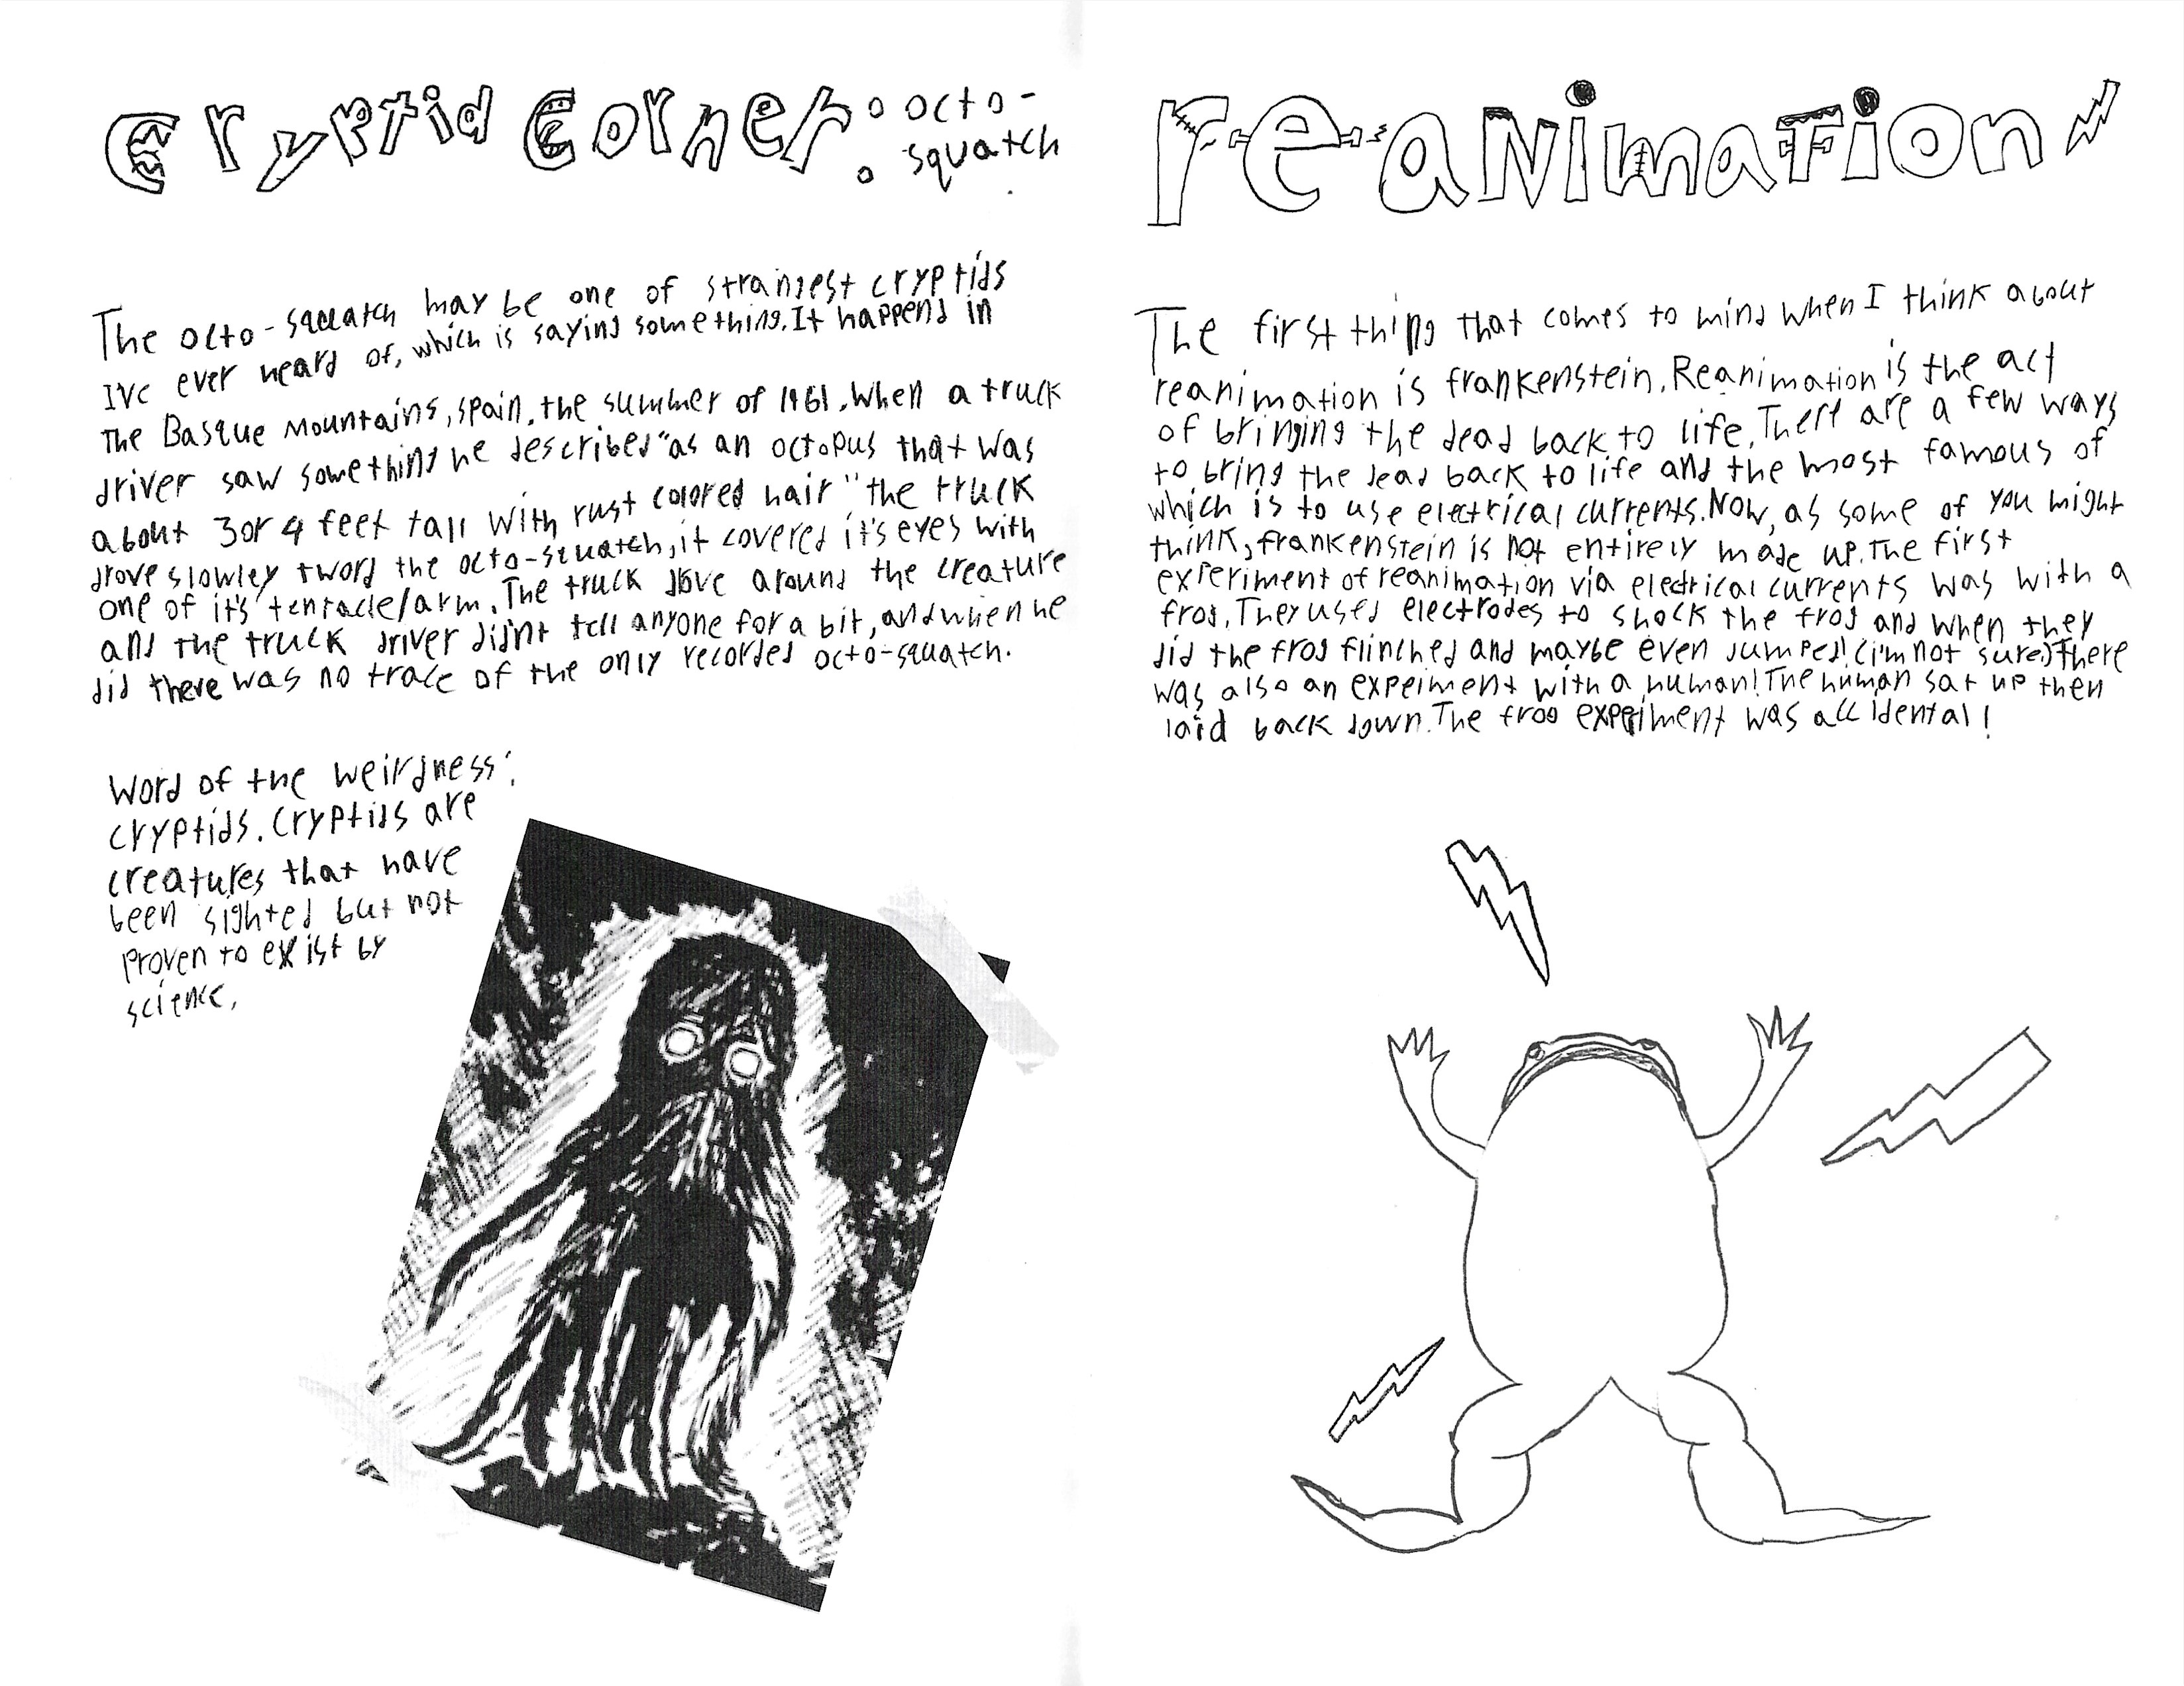 Cryptid Corner: octo-
squatch
The octo-squatch may be one of strangest cryptids
I've ever heard of, which is saying something. It happend in
the Basque Mountains, spain. the summer of 1961. when a truck
driver saw something he described "as an octopus that was
about 3 or 4 feet tall with rust colored hair" the truck
drove slowley tword the octo-squatch, it covered it's eyes with
one of it's tentacle/arm. The truck drove around the creature
and the truck driver didn't tell anyone for a bit, and when he
did there was no trace of the only recorded octo-squatch.
Word of the weirdness:
cryptids. Cryptids are
creatures that have
been sighted but not
proven to exist by
science.
reanimation
The first thing that comes to mind when I think about
reanimation is frankenstein. Reanimation is the act
of bringing the dead back to life. There are a few ways
to bring the dead back to life and the most famous of
which is to use electrical currents. Now, as some of you might
think, frankenstein is not entirely made up. The first
experiment of reanimation via electrical currents was with a
frog. They used electrodes to shock the frog and when they
did the frog flinched and maybe even jumped! (i'm not sure) There
was also an expeiment with a human! The human sat up then
laid back down. The frog experiment was accidental!